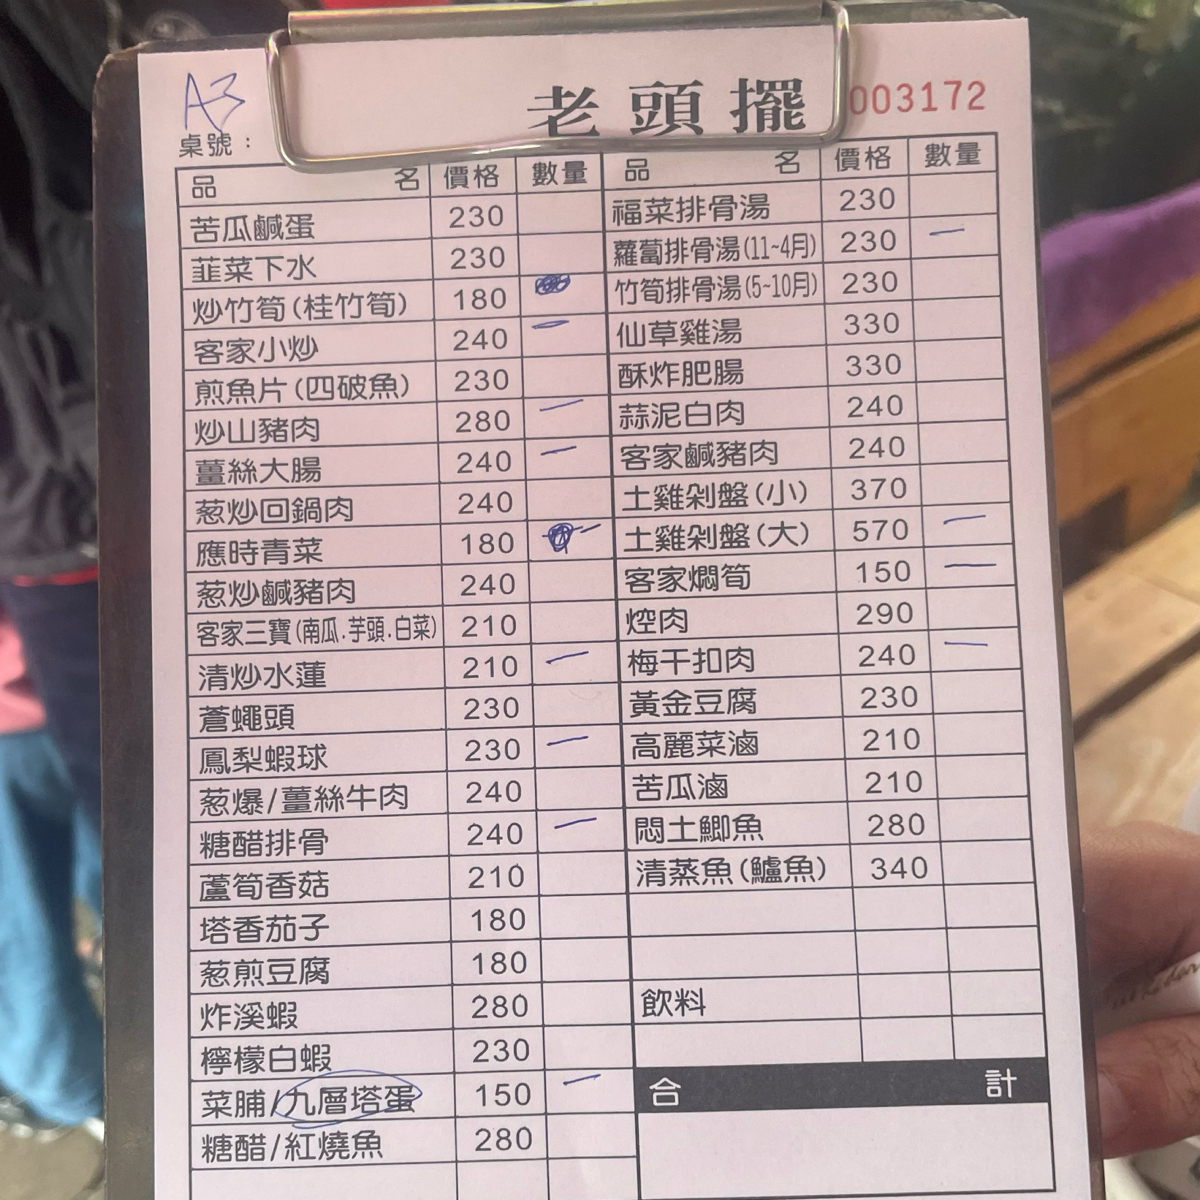 A3
老頭擺
003172
桌號：
品 名 價格 數量
苦瓜鹹蛋 230
韮菜下水 230
炒竹筍(桂竹筍) 180
客家小炒 240 一
煎魚片(四破魚) 230
炒山豬肉 280 一
薑絲大腸 240 一
葱炒回鍋肉 240
應時青菜 180 一
葱炒鹹豬肉 240
客家三寶(南瓜.芋頭.白菜) 210
清炒水蓮 210 一
蒼蠅頭 230
鳳梨蝦球 230 一
葱爆/薑絲牛肉 240
糖醋排骨 240 一
蘆筍香菇 210
塔香茄子 180
葱煎豆腐 180
炸溪蝦 280
檸檬白蝦 230
菜脯/九層塔蛋 150 一
糖醋/紅燒魚 280
品 名 價格 數量
福菜排骨湯 230
蘿蔔排骨湯(11~4月) 230 一
竹筍排骨湯(5~10月) 230
仙草雞湯 330
酥炸肥腸 330
蒜泥白肉 240
客家鹹豬肉 240
土雞剁盤(小) 370
土雞剁盤(大) 570 一
客家燜筍 150 一
焢肉 290
梅干扣肉 240 一
黃金豆腐 230
高麗菜滷 210
苦瓜滷 210
悶土鯽魚 280
清蒸魚(鱸魚) 340
飲料
合 計